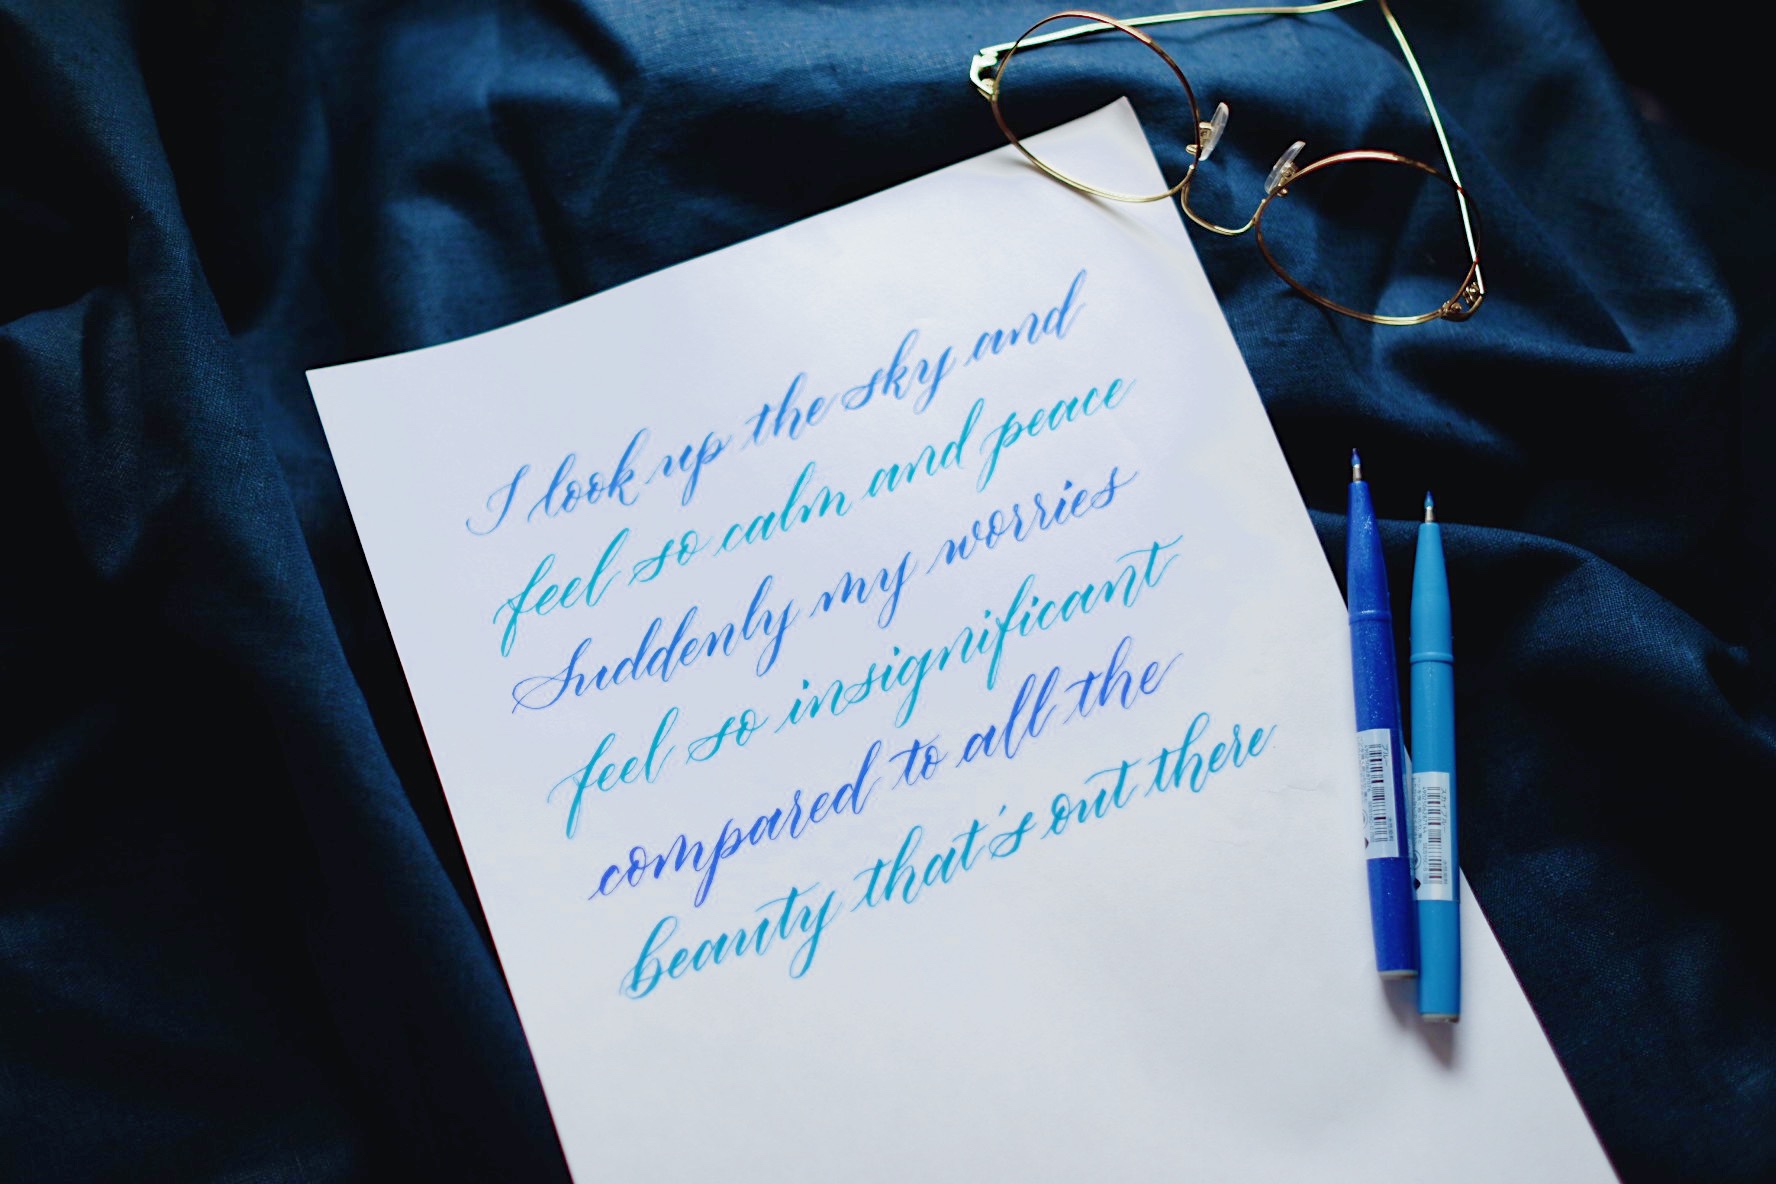 I look up the sky and
feel so calm and peace
Suddenly my worries
feel so insignificant
compared to all the
beauty that's out there